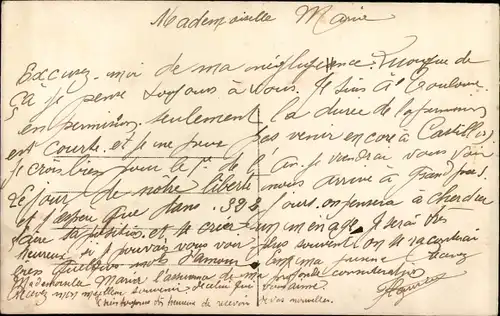 Mademoiselle Marie
Excusez-moi de ma négligence. Quoique de
ça je pense toujours à vous. Je suis à Toulouse
en permission seulement la durée de la permission
est courte. et je ne peux pas venir encore à Castillon
je crois bien pour le 1er de l'An. je viendrai vous voir
le jour de notre liberté mais arrive à grand pas.
et j'espère que dans 398 jours. on pensera à chercher
faire sa position et se créer un ménage. Je serai très
heureux si je pouvais vous voir plus souvent on se raconterai
quelques mots d'amour
Mademoiselle Marie l'assurance de ma profonde considération
Recevez mon meilleur souvenir de celui qui vous aime
très heureux de recevoir de vos nouvelles.